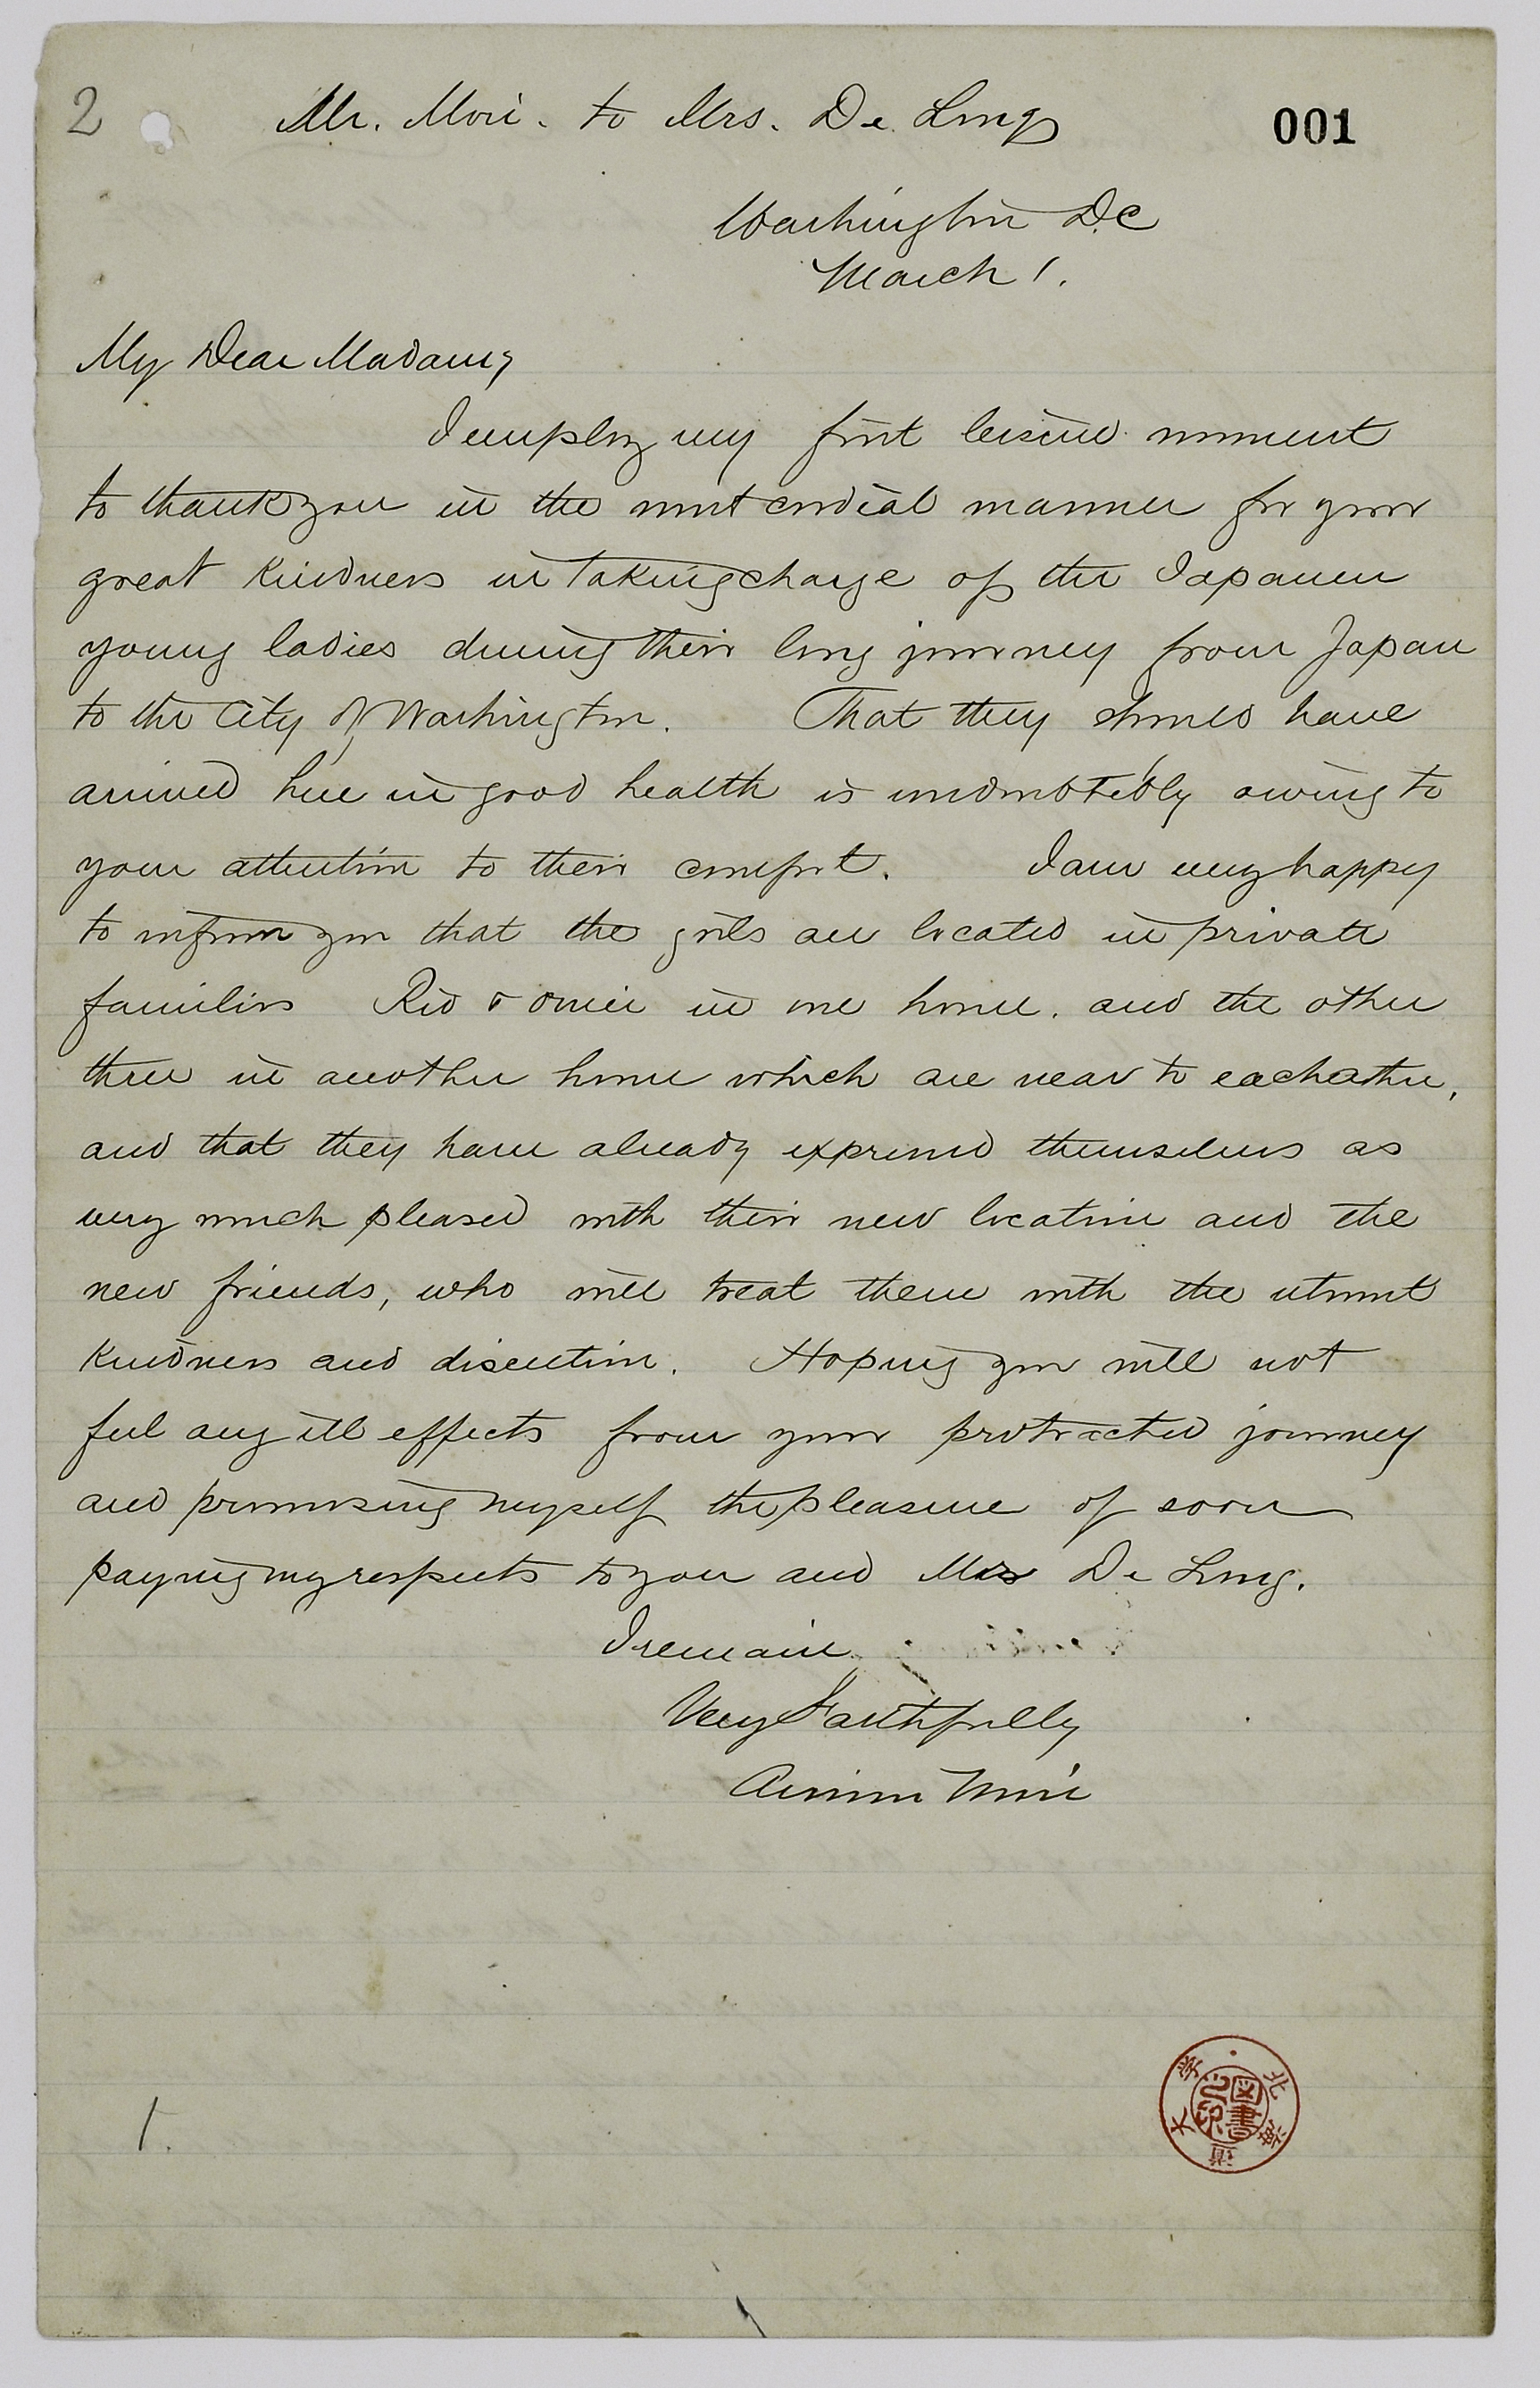 2
Mr. Mori. to Mrs. De Long
001
Washington D.C
March 1.
My Dear Madam,
I employ my first leisure moment
to thank you in the most cordial manner for your
great kindness in taking charge of the Japanese
young ladies during their long journey from Japan
to the City of Washington. That they should have
arrived here in good health is undoubtebly owing to
your attention to their comfort. I am very happy
to inform you that the girls are located in private
families Rio & omei in one house. and the other
three in another house which are near to each other,
and that they have already expressed themselves as
very much pleased with their new location and the
new friends, who will treat them with the utmost
kindness and discretion. Hoping you will not
feel any ill effects from your protracted journey
and promising myself the pleasure of soon
paying my respects to you and Mrs De Long.
I remain,
Very Faithfully
Arinori Mori
北海道大学
図書之印
1.